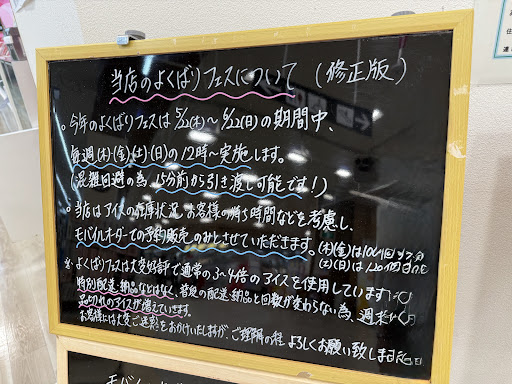 当店のよくばりフェスについて (修正版)
。今年のよくばりフェスは5/22(木)~6/22(日)の期間中、
毎週(木)(金)(土)(日)の12時~実施します。
(混雑回避の為、15分前から引き渡し可能です!)
。当店はアイスの在庫状況、お客様の待ち時間などを考慮し、
モバイルオーダーでの予約販売のみとさせていただきます。
(木)(金)は
(土)(日)は120個
※よくばりフェスは大変好評で通常の3~4倍のアイスを使用しています
特別配送・納品などはなく、普段の配送・納品と回数が変わらない為、週末
品切れのアイスが増えています。
お客様には大変ご迷惑をおかけいたしますが、ご理解の程 よろしくお願い致します
モバイル